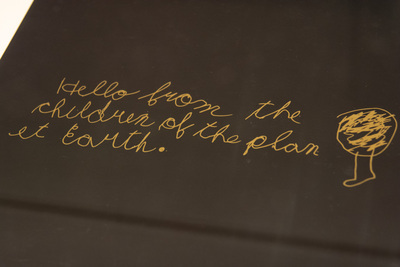 Hello from the
children of the plan
et Earth.